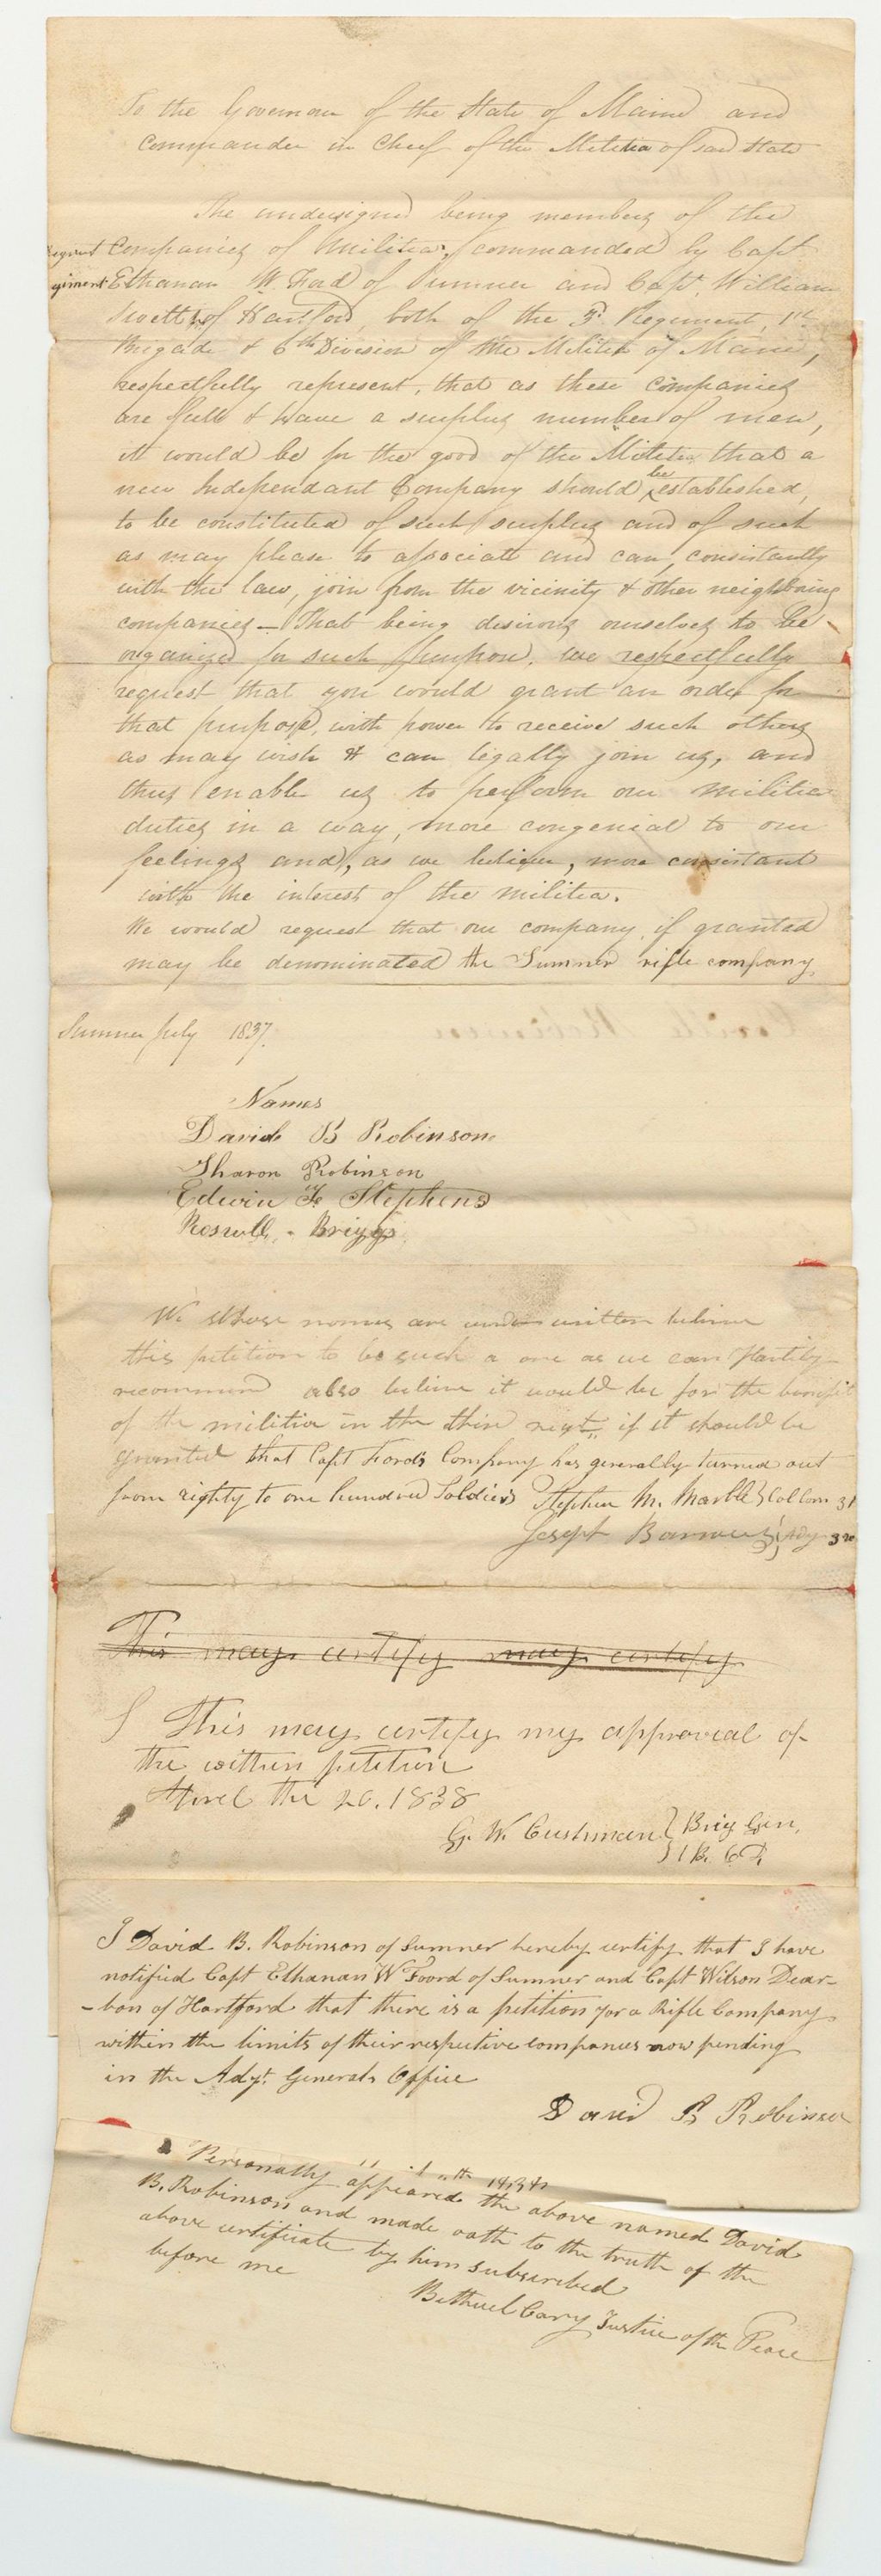 To the Governour of the State of Maine and
Commander in Chief of the Militia of said State
The undersigned being members of the
Companies of Militia, commanded by Capt
Elhanan W. Ford of Sumner and Capt. William
of Hartford, both of the 3d. Regiment, 1st
Brigade & 6th Division of the Militia of Maine,
respectfully represent, that as these companies
are full & have a surplus number of men,
it would be for the good of the Militia that a
new Independant Company should be established,
to be constituted of such surplus and of such
as may please to associate and can, consistantly
with the law, join from the vicinity & other neighboring
companies — That being desirous ourselves to be
organized for such purpose, we respectfully
request that you would grant an order for
that purpose, with power to receive such others
as may wish & can legally join us, and
thus enable us to perform our militia
duties in a way, more congenial to our
feelings and, as we believe, more consistant
with the interest of the militia.
We would request that our company, if granted
may be denominated the Sumner rifle company
Sumner July 1837.
Names
David B Robinson
Sharon Robinson
Edwin F. Stephens
Roswell Briggs
We whose names are under written believe
this petition to be such a one as we can Hartily
recommend also believe it would be for the benefit
of the militia in the third regt. if it should be
granted that Capt Fords Company has generally turned out
from eighty to one hundred Soldiers Stephen M. Marble } Col Com 3d
Joseph } Adj 3
This may certify may certify
This may certify my approval of
the within petition
the 20. 1838
G. W. Cushman } Brig Gen,
} 1 B. 6 D.
I David B. Robinson of Sumner hereby certify that I have
notified Capt Elhanan W Foord of Sumner and Capt Wilson Dear-
-bon of Hartford that there is a petition for a Rifle Company
within the limits of their respective companies now pending
in the Adjt. Generals Office
David B Robinson
Personally appeared the above named David
B. Robinson and made oath to the truth of the
above certificate by him subscribed
before me
Bethuel Cary Justice of the Peace